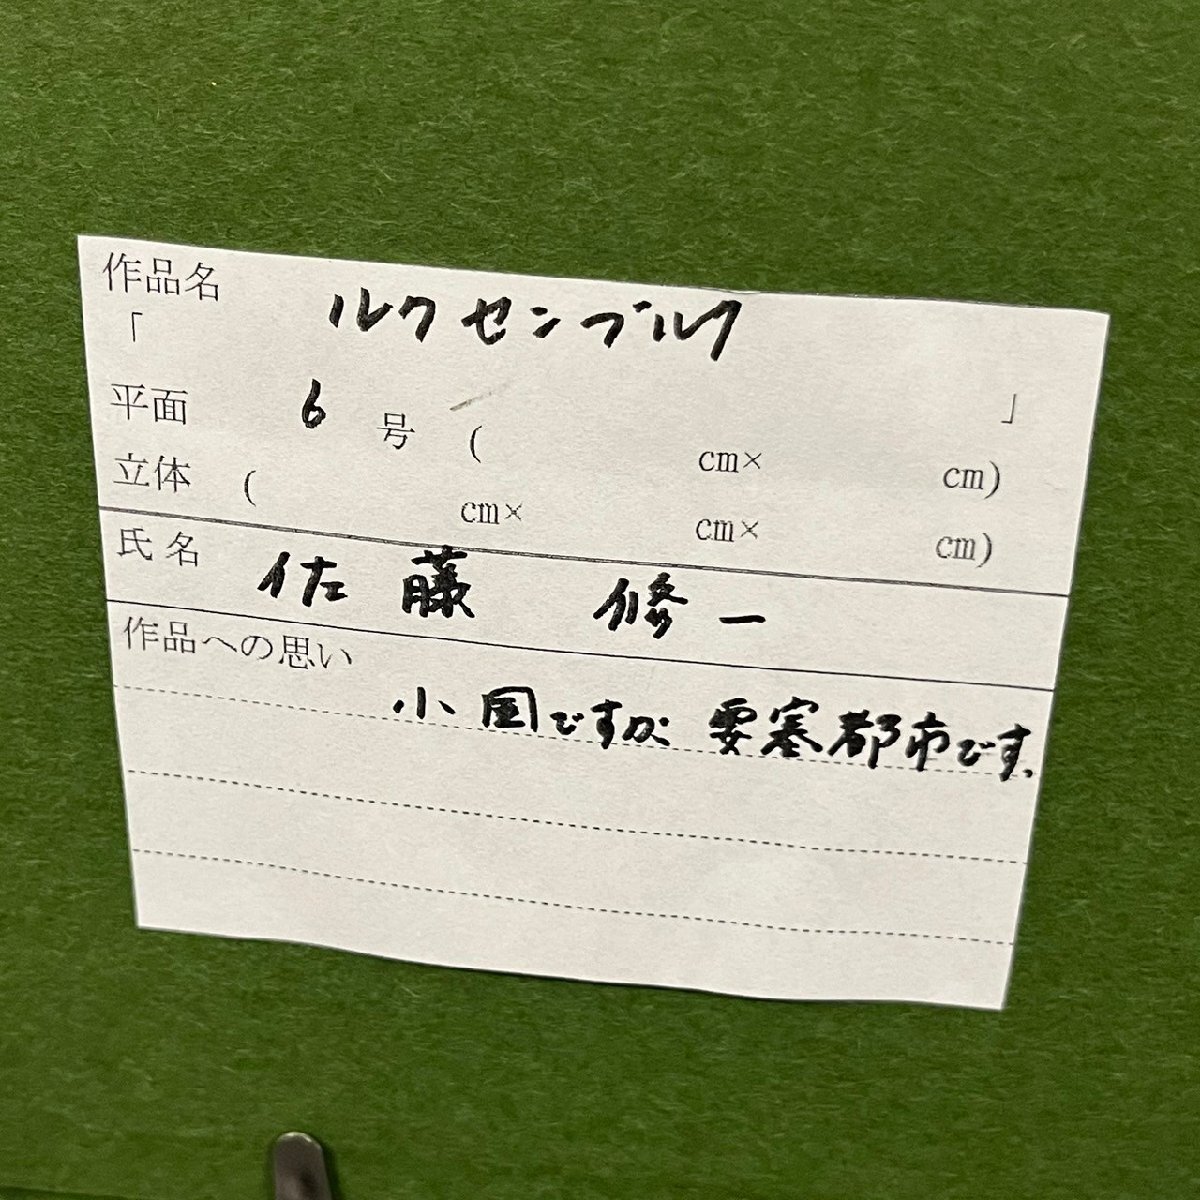 作品名
「 ルクセンブルク 」
平面 6 号 ( cm× cm)
立体 ( cm× cm× cm)
氏名 佐藤 修一
作品への思い
小国ですが 要塞都市です.